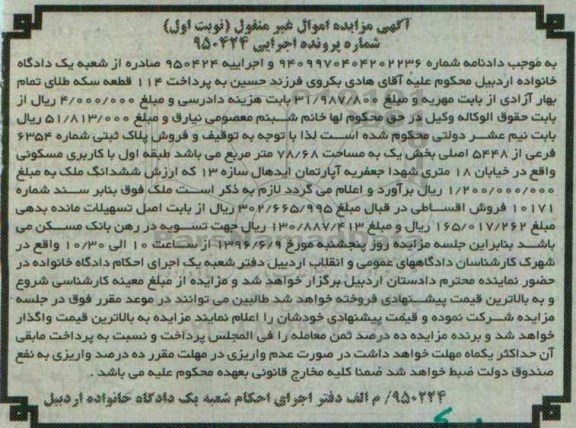 آگهی مزایده اموال غیر منقول (نوبت اول)
شماره پرونده اجرایی ۹۵۰۴۲۴
به موجب دادنامه شماره ۹۴۰۹۹۷۰۴۰۴۲۰۲۲۳۶ و اجراییه ۹۵۰۴۲۴ صادره از شعبه یک دادگاه
خانواده اردبیل محکوم علیه آقای هادی بکروی فرزند حسین به پرداخت ۱۱۴ قطعه سکه طلای تمام
بهار آزادی از بابت مهریه و مبلغ ۳۱/۹۸۷/۸۰۰ بابت هزینه دادرسی و مبلغ ۴/۰۰۰/۰۰۰ ریال از
بابت حقوق الوکاله وکیل در حق محکوم لها خانم شبنم معصومی نیارق و مبلغ ۵۱/۸۱۳/۰۰۰ ریال
بابت نیم عشر دولتی محکوم شده است لذا با توجه به توقیف و فروش پلاک ثبتی شماره ۶۳۵۴
فرعی از ۵۴۴۸ اصلی بخش یک به مساحت ۷۸/۶۸ متر مربع می باشد طبقه اول با کاربری مسکونی
واقع در خیابان ۱۸ متری شهدا جعفریه آپارتمان ایدهال سازه ۱۳ که ارزش ششدانگ ملک به مبلغ
۱/۲۰۰/۰۰۰/۰۰۰ ریال برآورد و اعلام می گردد لازم به ذکر است ملک فوق بنابر سند شماره
۱۰۱۷۱ فروش اقساطی در قبال مبلغ ۳۰۲/۶۶۵/۹۹۵ ریال از بابت اصل تسهیلات مانده بدهی
مبلغ ۱۶۵/۰۱۷/۲۶۲ ریال و مبلغ ۱۳۰/۸۸۷/۴۱۳ ریال جهت تسویه در رهن بانک مسکن می
باشد بنابراین جلسه مزایده روز پنجشنبه مورخ ۱۳۹۶/۶/۹ از ساعت ۱۰ الی ۱۰/۳۰ واقع در
شهرک کارشناسان دادگاههای عمومی و انقلاب اردبیل دفتر شعبه یک اجرای احکام دادگاه خانواده در
حضور نماینده محترم دادستان اردبیل برگزار خواهد شد و مزایده از مبلغ معینه کارشناسی شروع
و به بالاترین قیمت پیشنهادی فروخته خواهد شد طالبین می توانند در موعد مقرر فوق در جلسه
مزایده شرکت نموده و قیمت پیشنهادی خودشان را اعلام نمایند مزایده به بالاترین قیمت واگذار
خواهد شد و برنده مزایده ده درصد ثمن معامله را فی المجلس پرداخت و نسبت به پرداخت مابقی
آن حداکثر یکماه مهلت خواهد داشت در صورت عدم واریزی در مهلت مقرر ده درصد واریزی به نفع
صندوق دولت ضبط خواهد شد ضمنا کلیه مخارج قانونی بعهده محکوم علیه می باشد .
۹۵۰۲۲۴/ م الف دفتر اجرای احکام شعبه یک دادگاه خانواده اردبیل